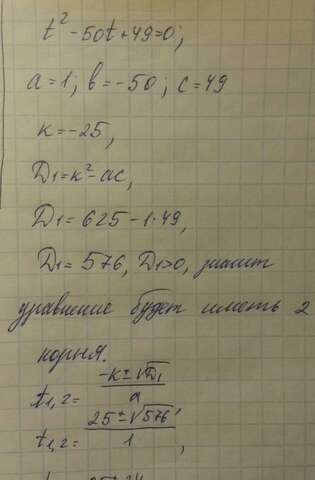 t² - 50t + 49 = 0;
a = 1; в = -50; c = 49
к = -25,
D₁ = к² - ac,
D₁ = 625 - 1·49,
D₁ = 576, D₁ > 0, значит
уравнение будет иметь 2
корня.
t₁,₂ = (-к ± √D₁)/a,
t₁,₂ = (25 ± √576)/1,